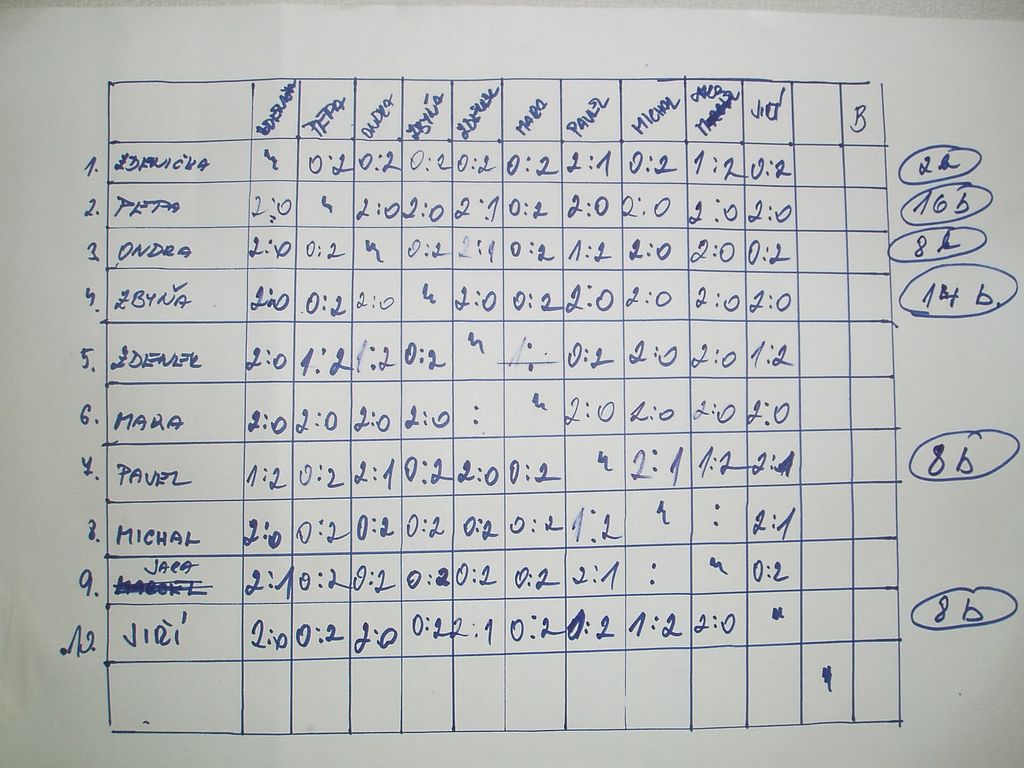 ZDENIČKA PEPA ONDRA ZBYŇA ZDENEK MARA PAVEL MICHAL JARA JIŘÍ B
1. ZDENIČKA 4 0:2 0:2 0:2 0:2 0:2 2:1 0:2 1:2 0:2 2B
2. PEPA 2:0 4 2:0 2:0 2:1 0:2 2:0 2:0 2:0 2:0 16B
3. ONDRA 2:0 0:2 4 0:2 2:1 0:2 1:2 2:0 2:0 0:2 8B
4. ZBYŇA 2:0 0:2 2:0 4 2:0 0:2 2:0 2:0 2:0 2:0 14B.
5. ZDENEK 2:0 1:2 1:2 0:2 4 1: 0:2 2:0 2:0 1:2
6. MARA 2:0 2:0 2:0 2:0 : 4 2:0 2:0 2:0 2:0
7. PAVEL 1:2 0:2 2:1 0:2 2:0 0:2 4 2:1 1:2 2:1 8B
8. MICHAL 2:0 0:2 0:2 0:2 0:2 0:2 1:2 4 : 2:1
9. JARA 2:1 0:2 0:2 0:2 0:2 0:2 2:1 : 4 0:2
10. JIŘÍ 2:0 0:2 2:0 0:2 2:1 0:2 1:2 1:2 2:0 4 8B
4